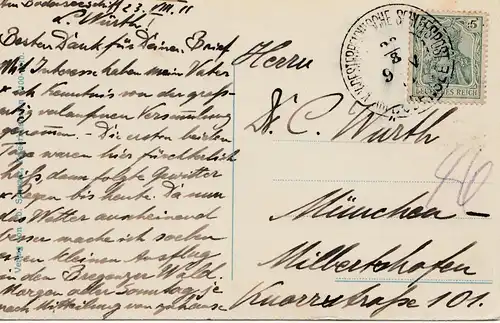 Am Bodenseeschiff 23. VII. 11
L. Wurth!
Besten Dank für Deinen Brief.
Mit Interesse haben mein Vater
& ich Kenntnis von der groß-
artig verlaufenen Versammlung
genommen. – Die ersten beiden
Tage waren hier fürchterlich
heiß, dann folgte Gewitter
& Regen bis heute. Da nun
das Wetter anscheinend
besser mache ich soeben
einen kleinen Ausflug
in den Bregenzer Wald.
Morgen aber Sonntag je
nach Mitteilung von zuhause
Herrn
Dr. C. Wurth
München-
Milbertshofen
Knorrstraße 101.
46
5
DEUTSCHES REICH